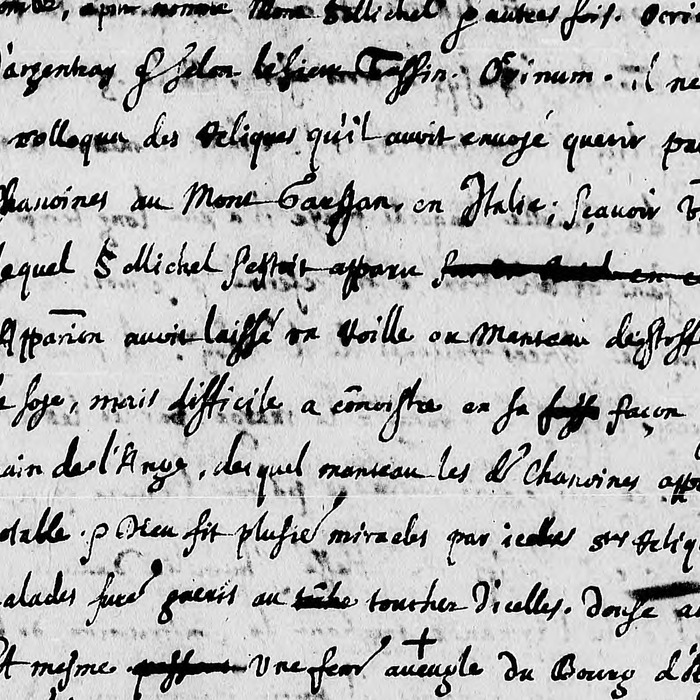 nomme Mont S Michel p autres fois.
d'argentray & selon le sieur Tassin. Orinum. il ne
colloqua des Reliques qu'il auoit enuoyé querir par
Chanoines au Mont Gargan, en Italie; sçauoir
lequel S Michel s'estoit apparu
Apparion auoit laissé vn Voille ou Manteau
de soye, mais difficile a cōnoistre en sa façon
main de l'Ange, desquel manteau les ds Chanoines
notable. p Dieu fit plusie miracles par icelles stes Reliq
malades fure gueris au toucher Dicelles. Douse
Et mesme Vne fem aueugle Du Bourg